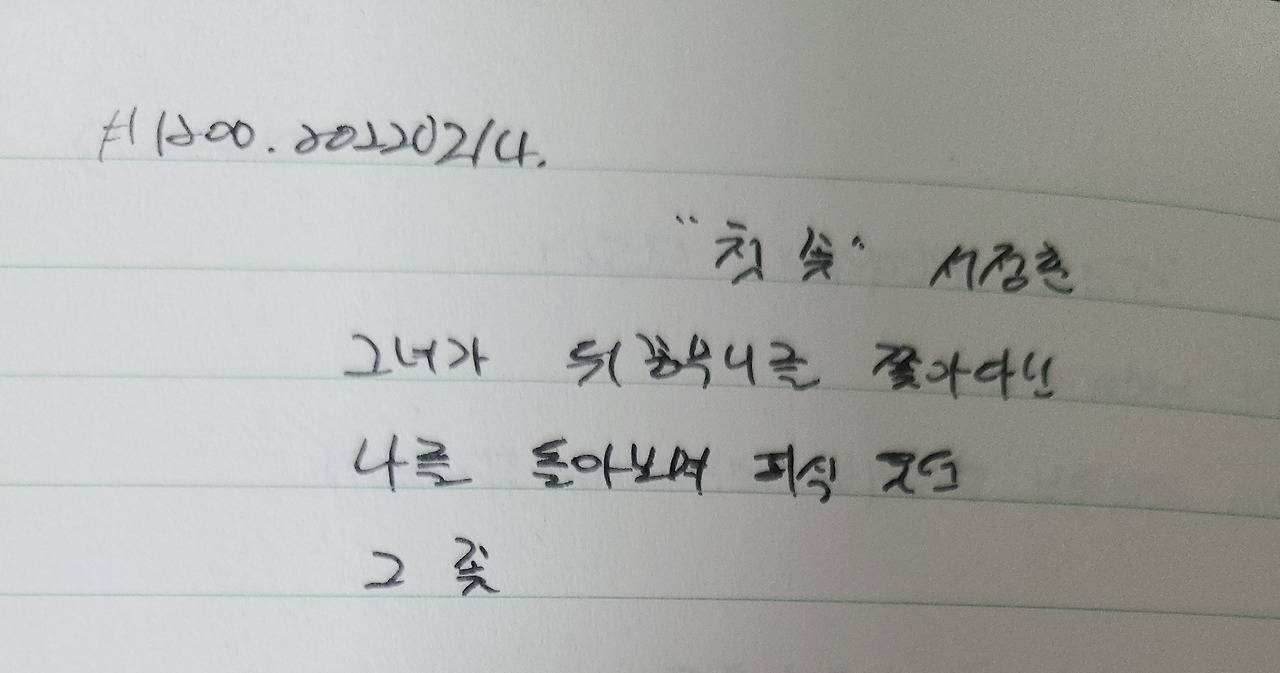 #1200. 20220214.
"첫 꽃" 서정춘
그녀가 뒤꽁무니를 쫓아다닌
나를 돌아보며 피식 웃던
그 꽃